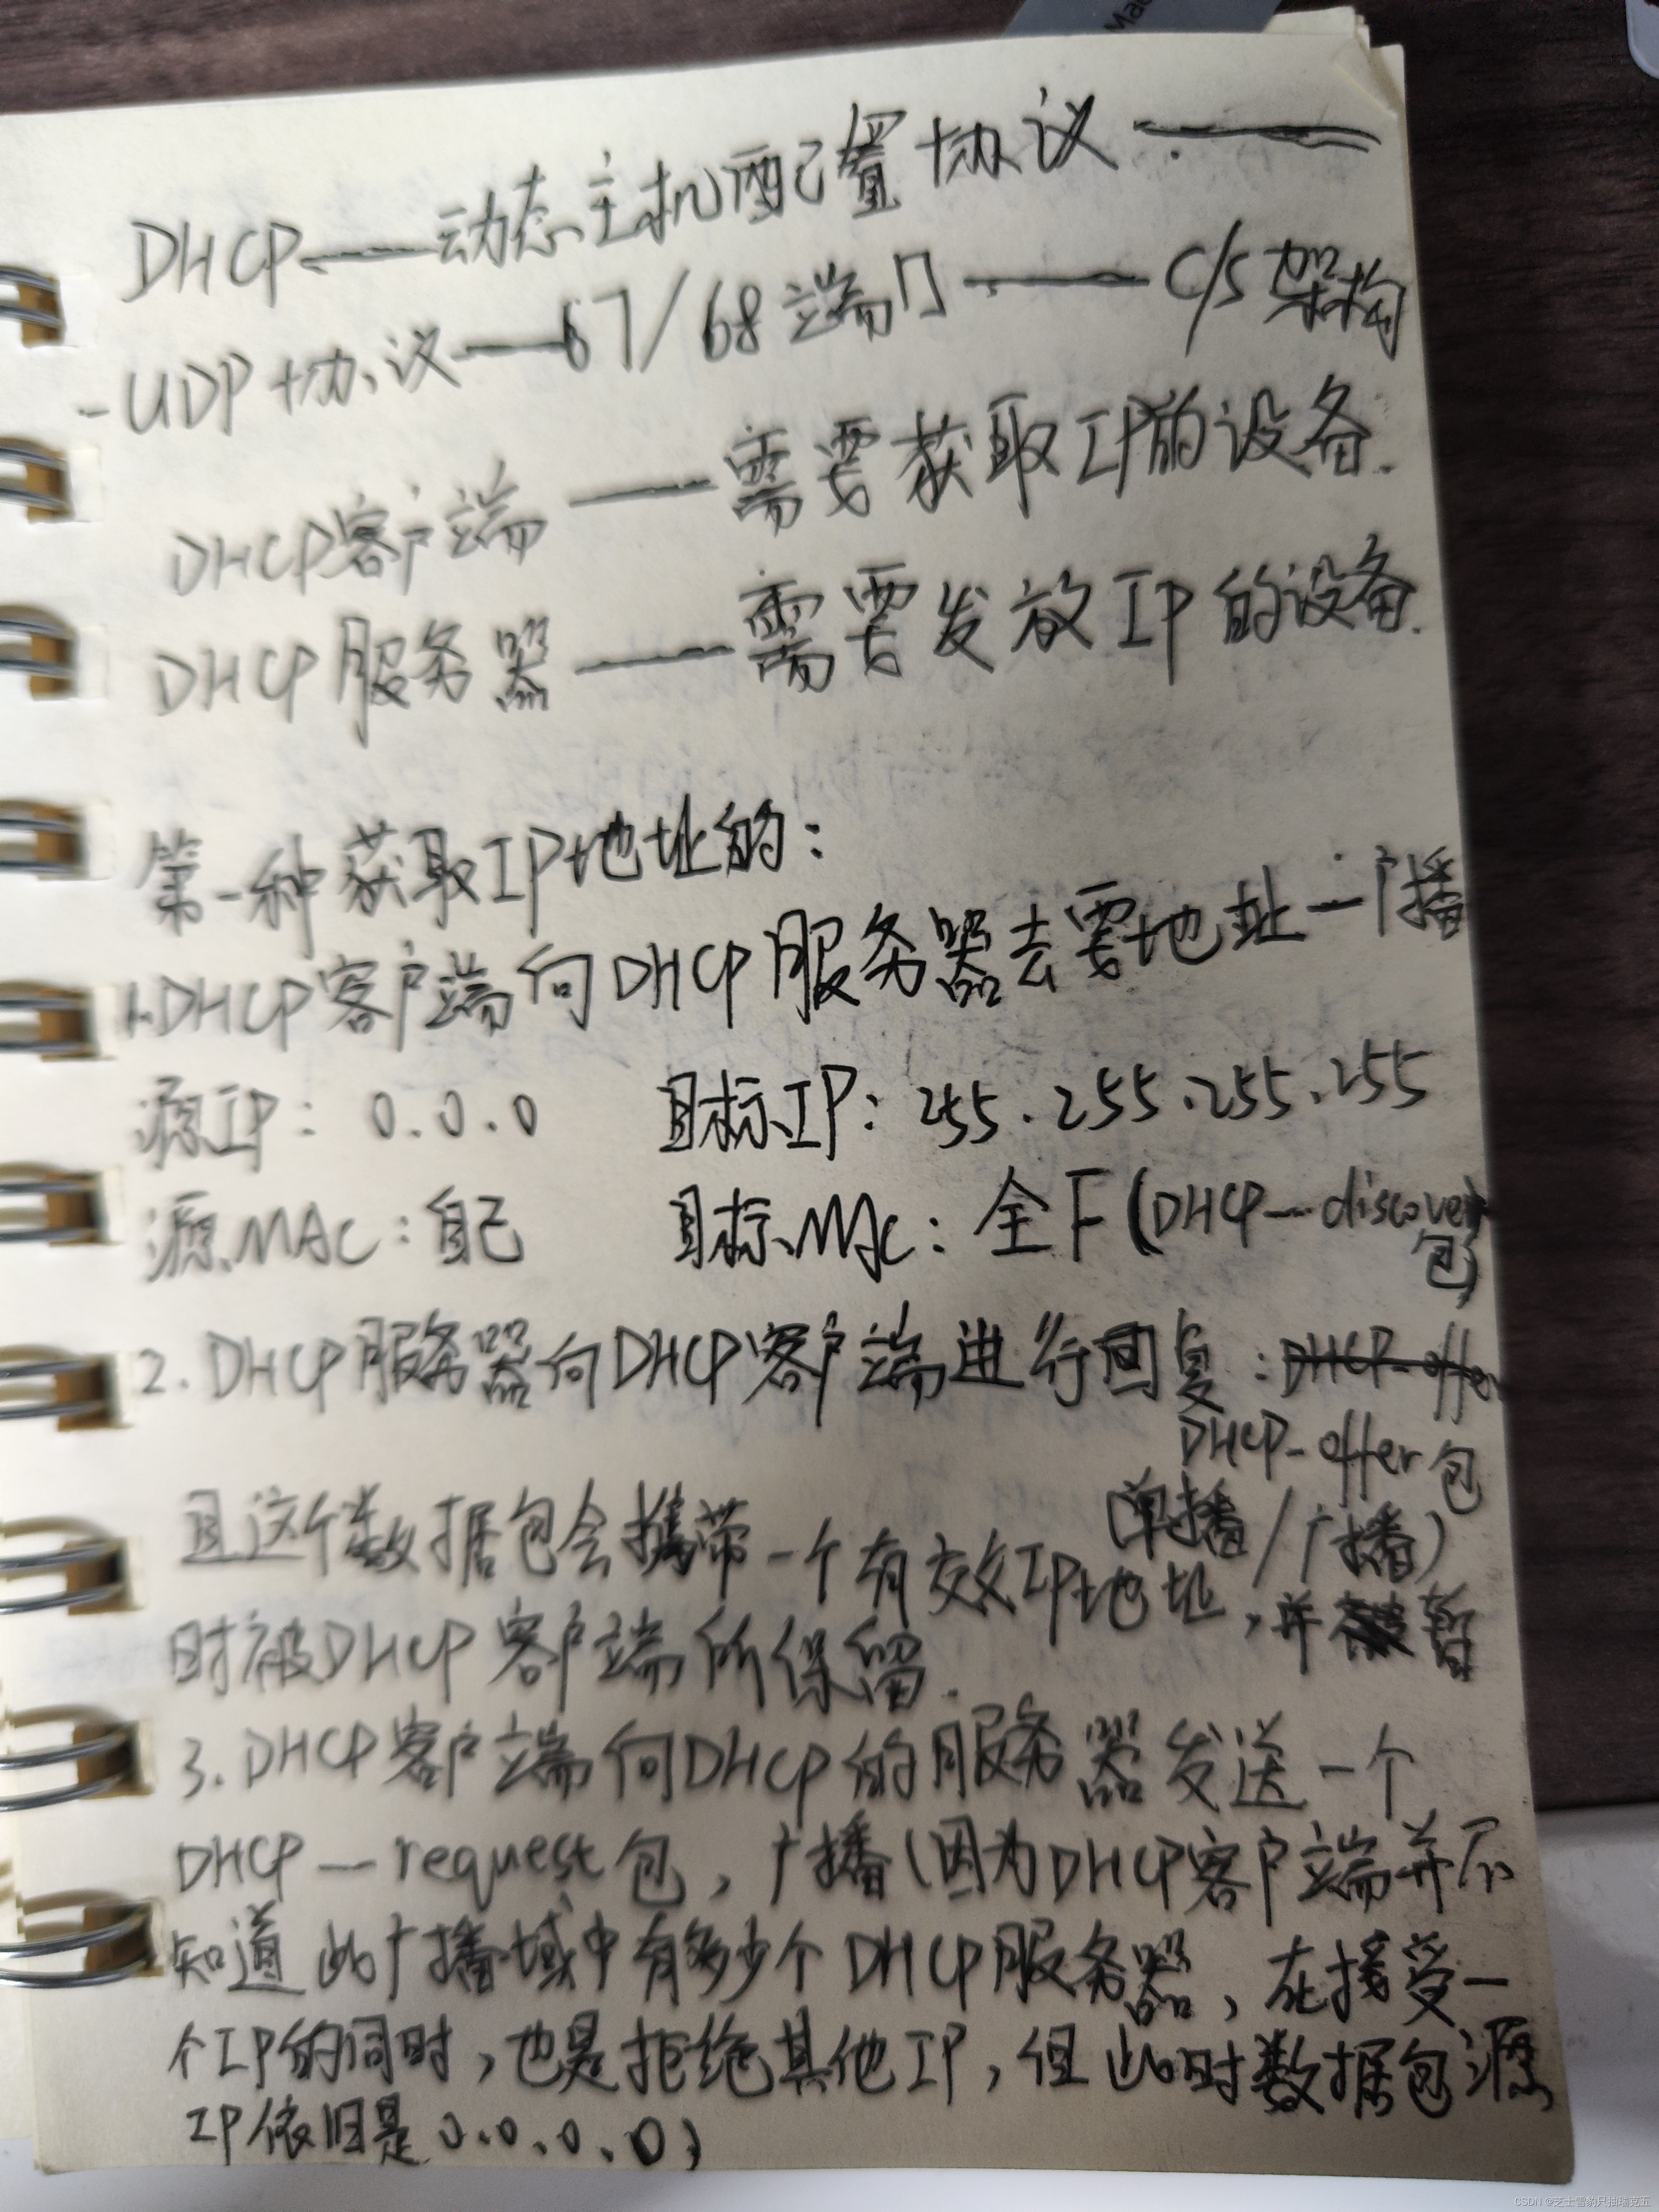 Mac
DHCP——动态主机配置协议——
-UDP协议——67/68端门——C/S架构
DHCP客户端——需要获取IP的设备.
DHCP服务器——需要发放IP的设备.
第一种获取IP地址的:
1.DHCP客户端向DHCP服务器去要地址—广播
源IP: 0.0.0 目标IP: 255.255.255.255
源MAC:自己 目标MAC: 全F(DHCP—discover
包)
2.DHCP服务器向DHCP客户端进行回复:DHCP-offer
DHCP-offer包
(单播/广播)
且这个数据包会携带一个有效IP地址,并暂
时被DHCP客户端所保留.
3.DHCP客户端向DHCP的服务器发送一个
DHCP—request包,广播(因为DHCP客户端并不
知道此广播域中有多少个DHCP服务器,在接受一
个IP的同时,也是拒绝其他IP,但此时数据包源
IP依旧是0.0.0.0)
CSDN @芝士雪豹只抽瑞克五